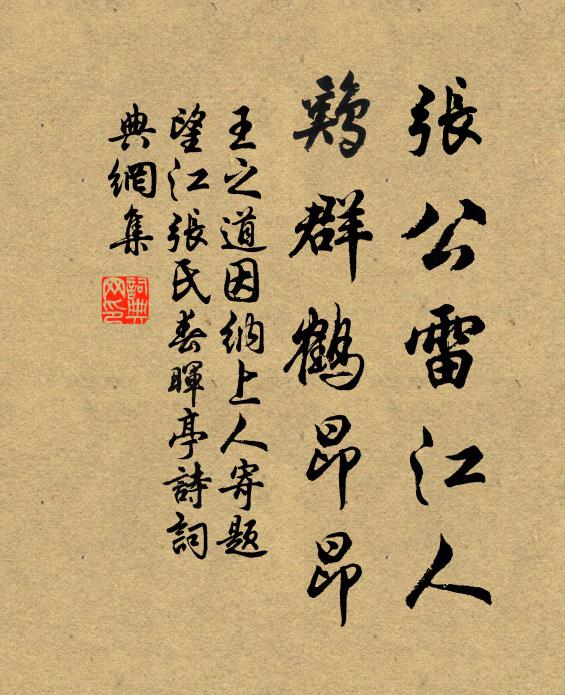 張公雷江人
鷄群鶴昂昂
王之道因納上人寄題
望江張氏春暉亭詩詞
典網集
詞典
网印